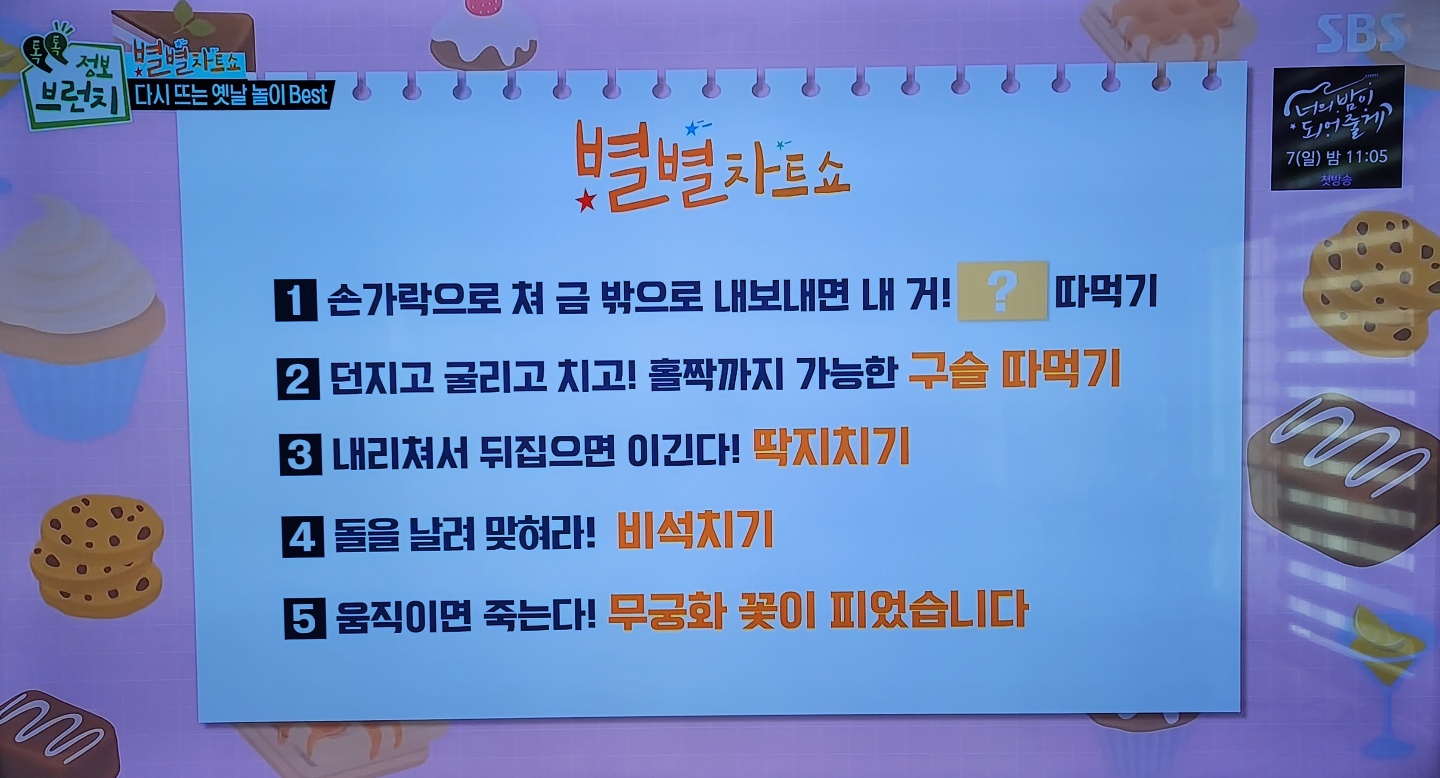 톡톡 정보 브런치
별별차트쇼
다시 뜨는 옛날 놀이 Best
SBS
너의 밤이
되어줄게
7(일) 밤 11:05
첫방송
별별차트쇼
1 손가락으로 쳐 금 밖으로 내보내면 내 거! ? 따먹기
2 던지고 굴리고 치고! 홀짝까지 가능한 구슬 따먹기
3 내리쳐서 뒤집으면 이긴다! 딱지치기
4 돌을 날려 맞혀라! 비석치기
5 움직이면 죽는다! 무궁화 꽃이 피었습니다